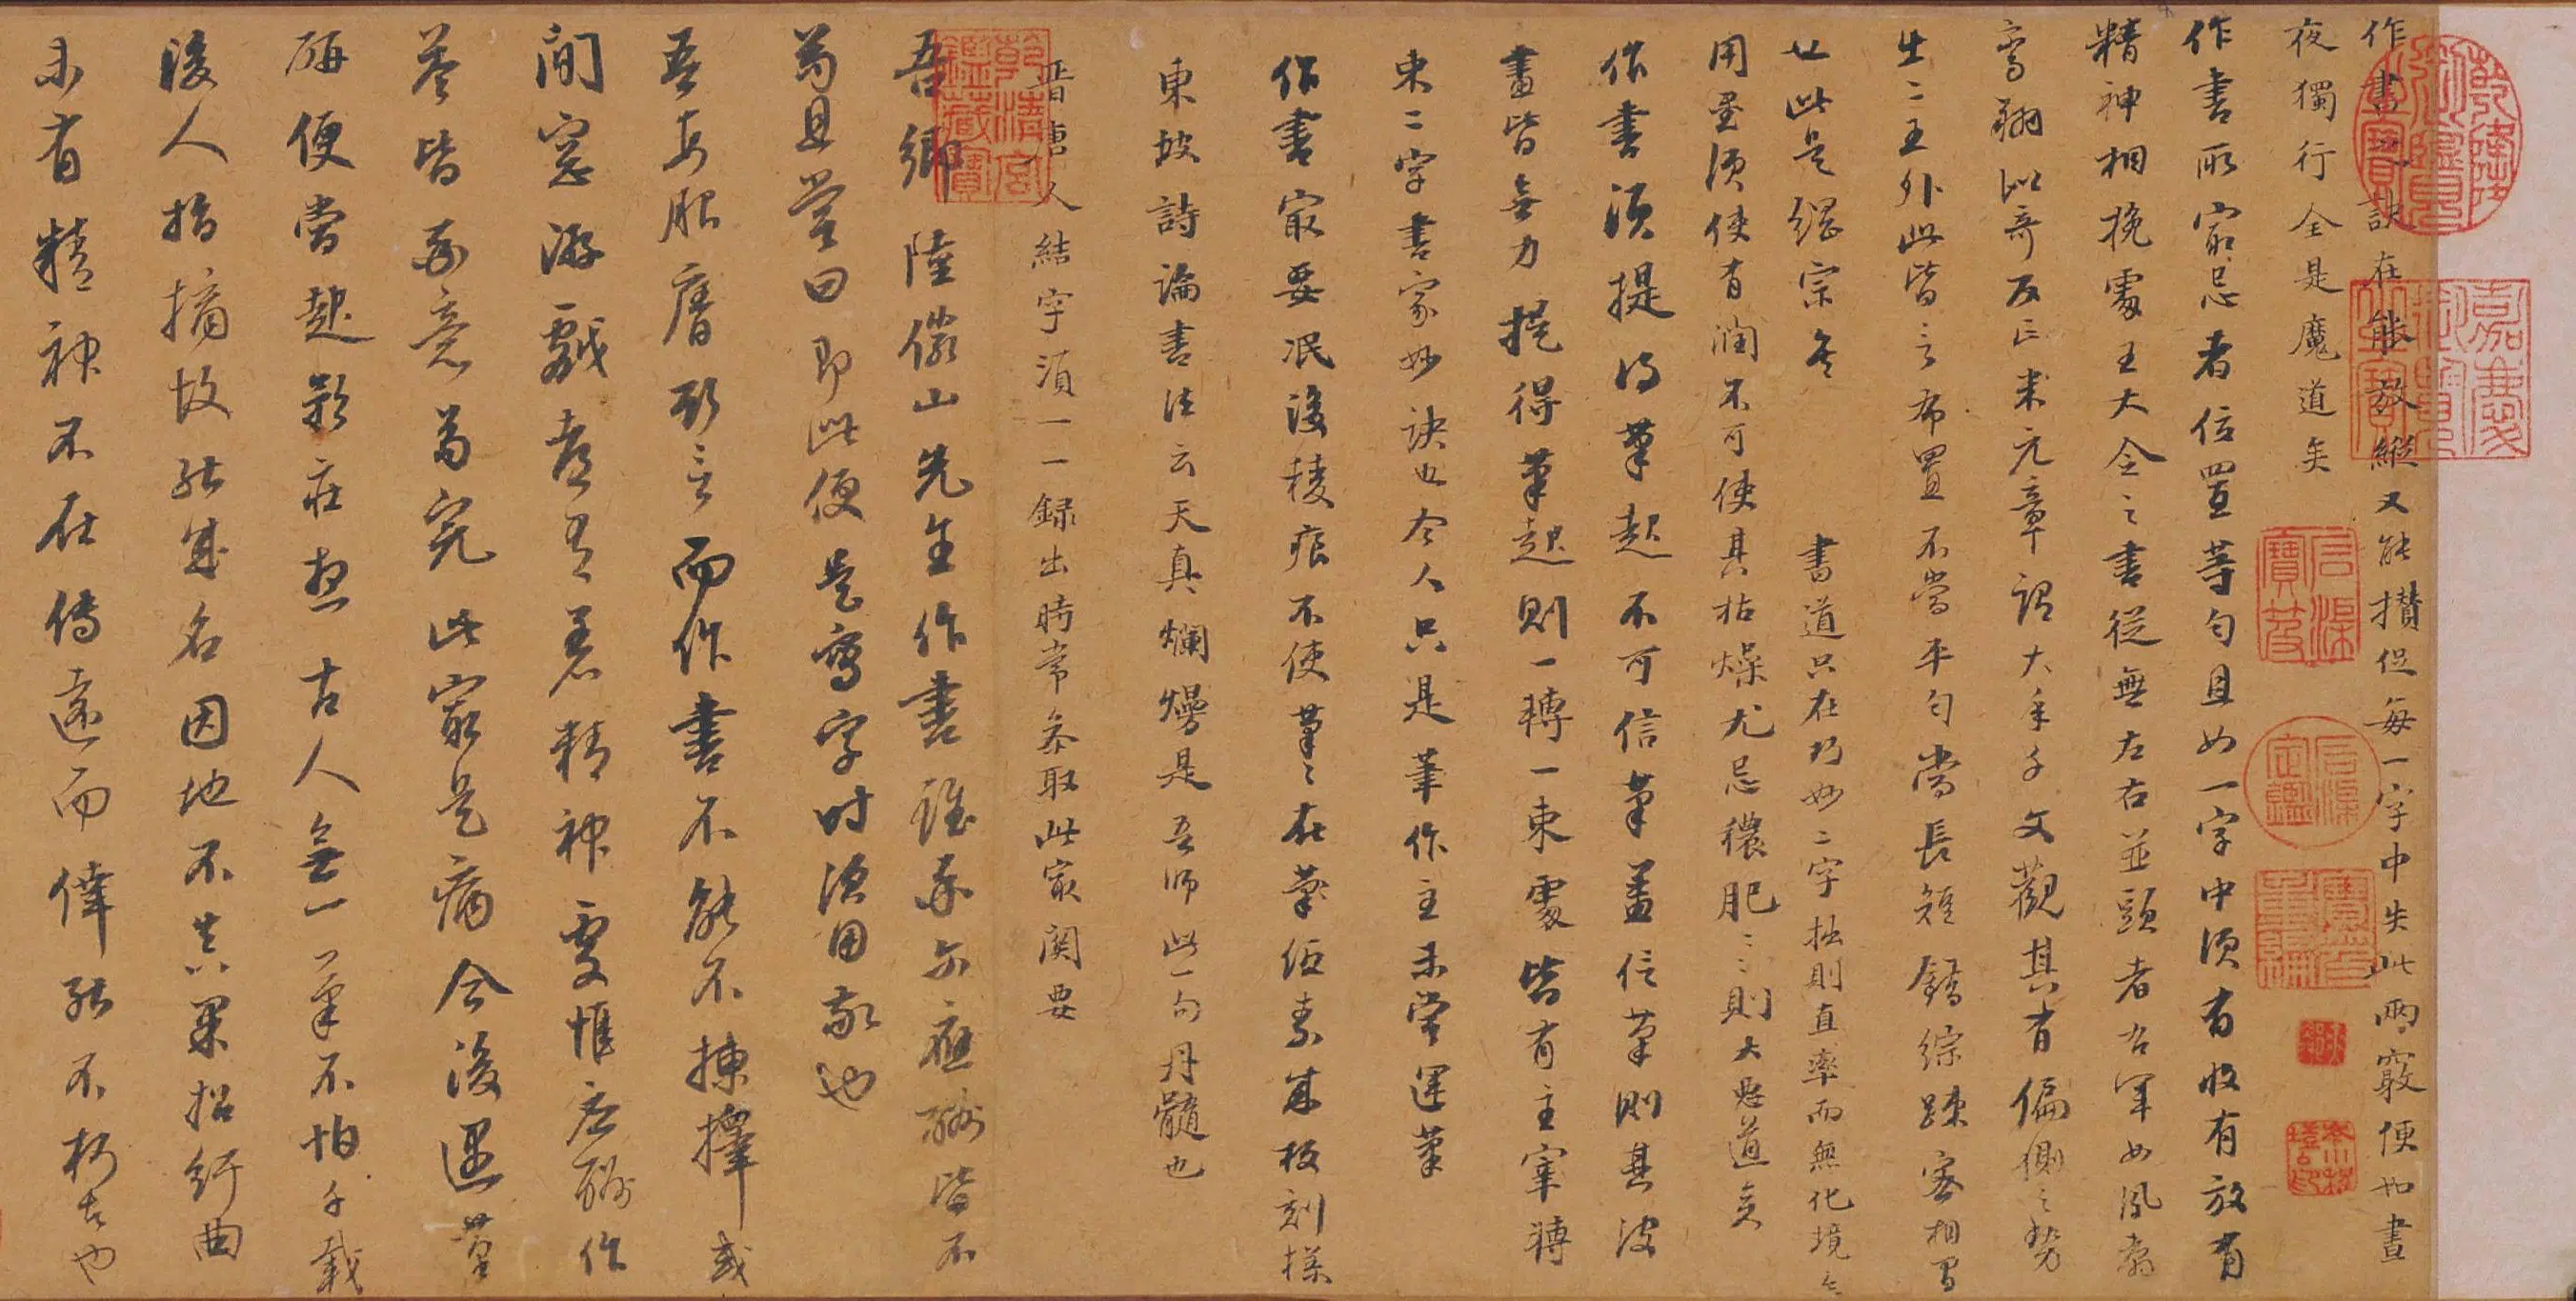 作書之訣在能放縱又能攢促每一字中失此兩竅便如晝
夜獨行全是魔道矣
作書所最忌者位置等勻且如一字中須有收有放有
精神相挽處王大令之書從無左右並頭者右軍如鳳翥
鸞翔似奇反正米元章謂大年千文觀其有偏側之勢
出二王外此皆言布置不當平勻當長短錯綜疎密相間
也此是綱宗矣 書道只在巧妙二字拙則直率而無化境矣
用墨須使有潤不可使其枯燥尤忌穠肥肥則大惡道矣
作書須提得筆起不可信筆蓋信筆則其波
畫皆無力提得筆起則一轉一束處皆有主宰轉
束二字書家妙訣也今人只是筆作主未嘗運筆
作書最要泯沒稜痕不使筆筆在帋素成板刻樣
東坡詩論書法云天真爛熳是吾師此一句丹髓也
晉唐人結字須一一錄出時常參取此最關要
吾鄉陸儼山先生作書雖率爾應酬皆不
苟且嘗曰即此便是寫字時須用敬也
吾每服膺斯言而作書不能不揀擇或
閒窓游戲都有著精神處惟應酬作
答皆率意苟完此最是病今後遇筆
研便當起矜莊想古人無一筆不怕千載
後人指摘故能成名因地不真果招紆曲
未有精神不在傳遠而倖能不朽者也
乾隆御覽之寶
嘉慶御覽之寶
石渠寶笈
石渠定鑑
寶笈重編
乾清宮鑑藏寶